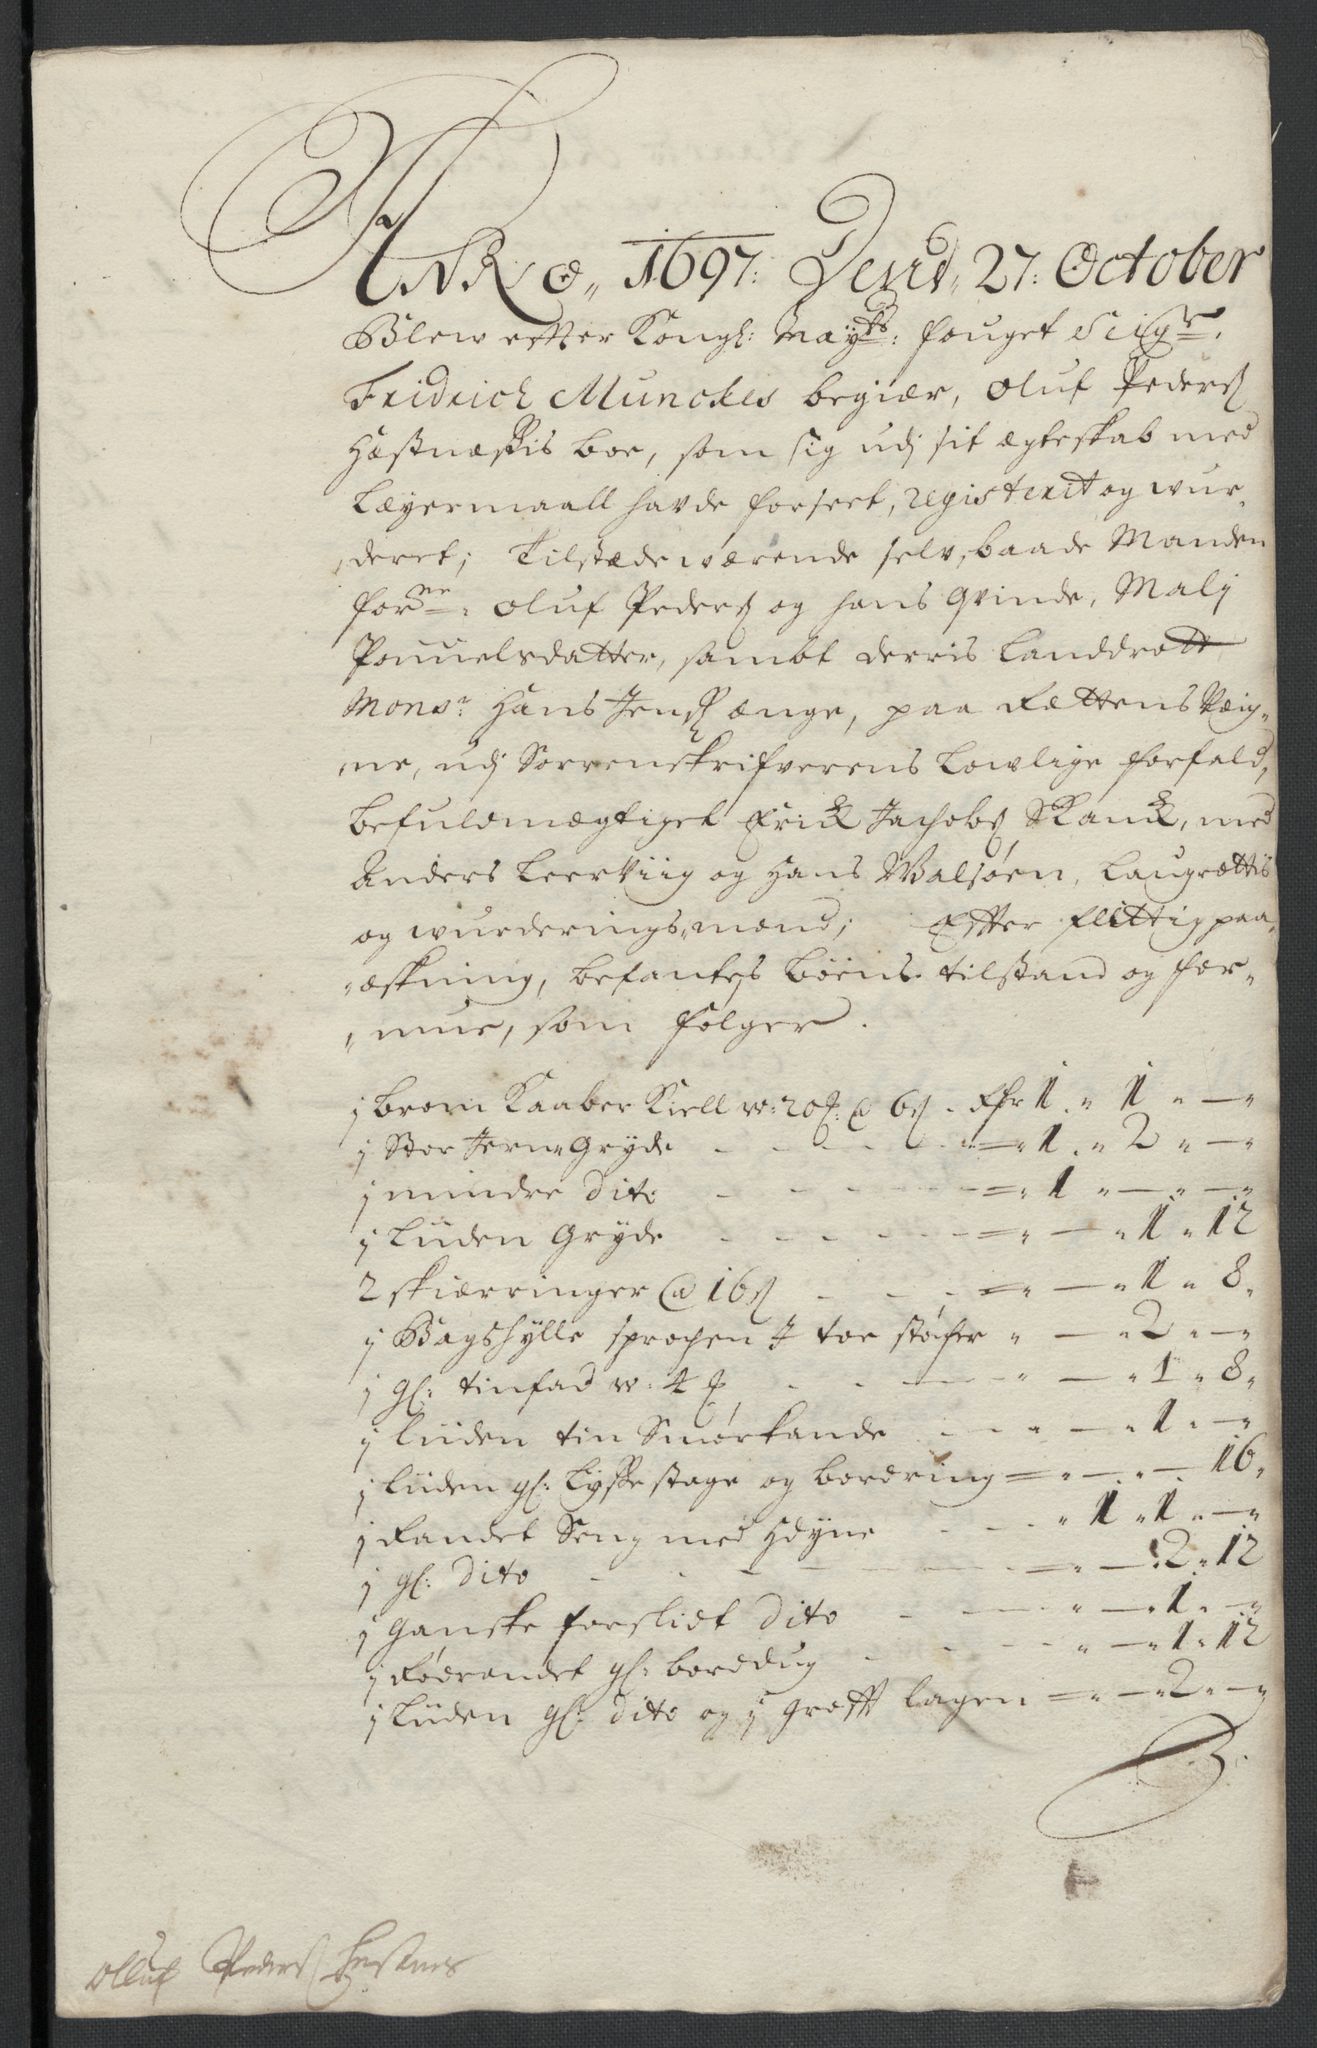 ANNO,, 1697: Dend,, 27: October
Blew efter Kongl: Mayts: fouget Seigr.
Fridrich Munckes begiær, Oluf Peders
Hæstnæssis boe, som sig udj sit ægteskab med
Leyermaall havde forseet, registerit og wur,
,deret; Tilstæde wærende selv, baade Manden
forne: Oluf Peders og hans qvinde, Malj
Pouuelsdatter, sambt derris Landdrott
Monsr. Hans Jens ænge, paa Rættens Væig„
„ne, udj Sorrenskrifverens Lowlige forfald,
befuldmægtiget Erick Jachobs Skanck, med
Anders Leerviig og Hans Walsøen, Laugrættis
og wurderings„mænd; Efter flittig paa„
„æskning, befantes boens tilstand og for„
„mue, som følger.
j brom Kaaber Kiell w: 20 a 6 s . Rdr 1 „ 1 „ — „
j Stor Jern Gryde - - - 1 „ 2 „ — „
j mindre dito - - - 1 „ — „ — „
j Liiden Gryde - - - „ — „ 1 „ 12
2 skiærringer @ 16 s - - „ — „ 1 „ 8 „
j Bagshylle sprochen I toe støcher „ — „ 2 „ — „
j gl: tinfad w: 4 - - - „ — „ 1 „ 8 „
j liiden tin Smørkande - - „ — „ 1 „ — „
j liiden gl: Lysse stage og bordring „ — „ — 16 „
j Randet Seng med Hdyne - - „ 1 „ 1 „ — „
j gl: dito - - - „ — „ 2 „ 12
j ganske forslidt dito - - „ — „ 1 „ — „
j Rødrandet gl: borddug - - „ — „ 1 „ 12
j liiden gl: dito og j groft lagen „ — „ 2 „ — „
Olluf Peders Hestnes